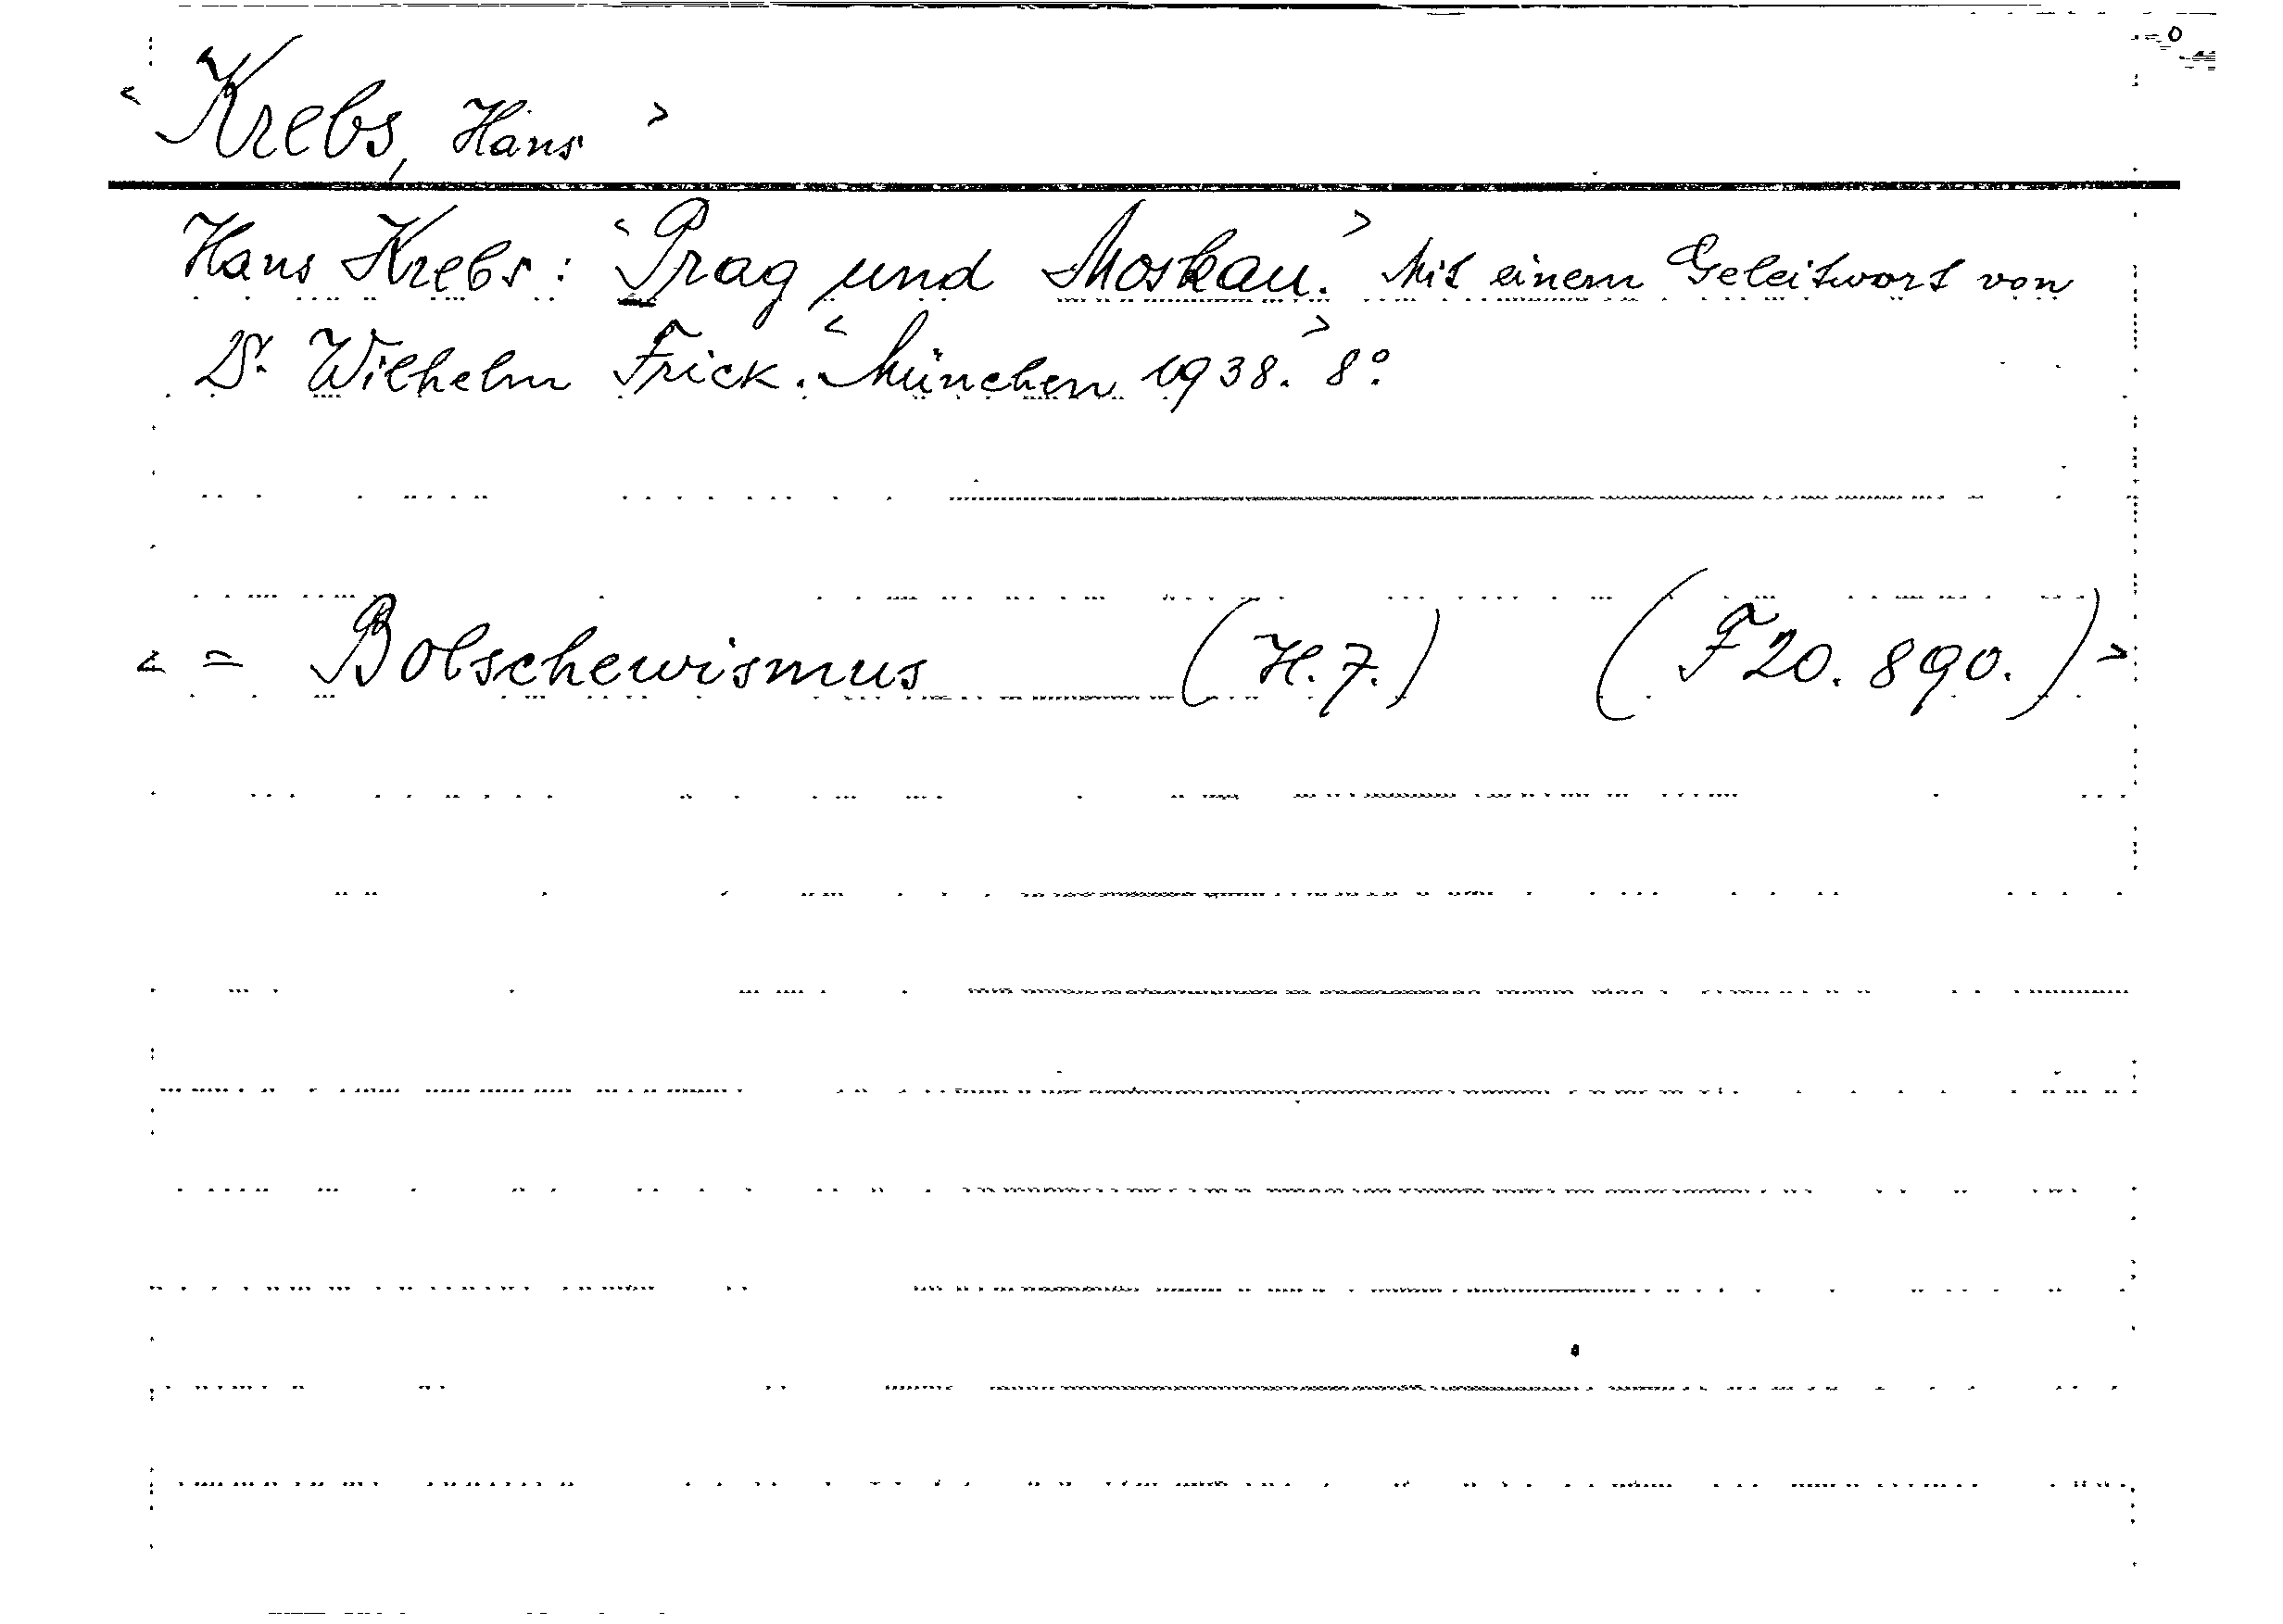 < Krebs, Hans >
Hans Krebs: < Prag und Moskau. > Mit einem Geleitwort von
Dr. Wilhelm Frick. < München 1938. > 8°.
< = Bolschewismus (H.7.) (F20.890.) >